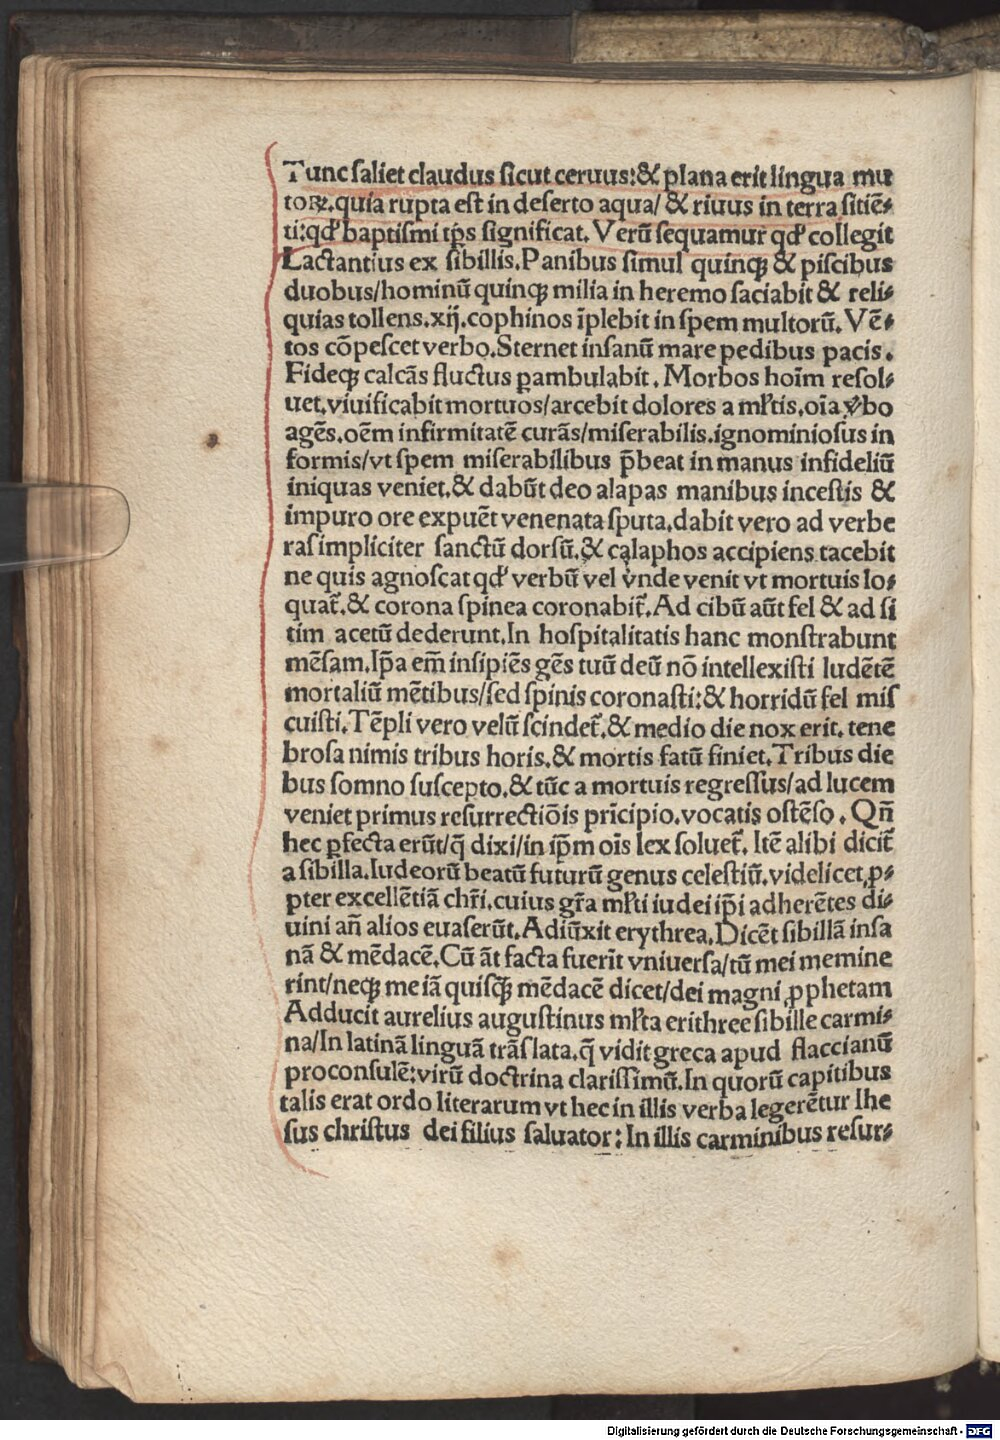 Tunc ſaliet claudus ſicut ceruus:& plana erit lingua mu
toꝝ.quia rupta eſt in deſerto aqua/ & riuus in terra ſitiē⸗
ti:qd' baptiſmi tp̄s ſignificat. Verū ſequamur qd' collegit
Lactantius ex ſibillis.Panibus ſimul quinqꝫ & piſcibus
duobus/hominū quinqꝫ milia in heremo ſaciabit & reli⸗
quias tollens.xij.cophinos īplebit in ſpem multorū. Vē⸗
tos cōpeſcet verbo.Sternet inſanū mare pedibus pacis.
Fideqꝫ calcās fluctus ꝑambulabit. Morbos hoīm reſol⸗
uet.viuificabit mortuos/arcebit dolores a ml'tis.oīa v̓bo
agēs.oēm infirmitatē curās/miſerabilis.ignominioſus in
formis/vt ſpem miſerabilibus p̄beat in manus infideliū
iniquas veniet.& dabūt deo alapas manibus inceſtis &
impuro ore expuēt venenata ſputa.dabit vero ad verbe
raſimpliciter ſanctū dorſū.& calaphos accipiens tacebit
ne quis agnoſcat qd' verbū vel v̓nde venit vt mortuis lo⸗
quat̄.& corona ſpinea coronabit̄.Ad cibū aūt fel & ad ſi
tim acetū dederunt.In hoſpitalitatis hanc monſtrabunt
mēſam.Ip̄a em̄ inſipiēs gēs tuū deū nō intellexiſti ludētē
mortaliū mētibus/ſed ſpinis coronaſti:& horridū fel miſ
cuiſti.Tēpli vero velū ſcindet̄.& medio die nox erit. tene
broſa nimis tribus horis.& mortis fatū finiet.Tribus die
bus ſomno ſuſcepto.& tūc a mortuis regreſſus/ad lucem
veniet primus reſurrectiōis prīcipio.vocatis oſtēſo. Qn̄
hec ꝑfecta erūt/q̄ dixi/in ip̄m oīs lex ſoluet̄. Itē alibi dicit̄
a ſibilla.Iudeorū beatū futurū genus celeſtiū.videlicet ꝓ⸗
pter excellētiā chr̄i.cuius gr̄a ml'ti iudei ip̄i adherētes di⸗
uini an̄ alios euaſerūt.Adiūxit erythrea.Dicēt ſibillā inſa
nā & mēdacē.Cū āt facta fuerīt vniuerſa/tū mei memine
rint/neqꝫ me iā quiſqꝫ mēdacē dicet/dei magni ꝓphetam
Adducit aurelius auguſtinus ml'ta erithree ſibille carmi⸗
na/In latinā linguā trāſlata.q̄ vidit greca apud flaccianū
proconſulē:virū doctrina clariſſimū.In quorū capitibus
talis erat ordo literarum vt hec in illis verba legerētur Ihe
ſus chriſtus dei filius ſaluator:In illis carminibus reſur⸗
Digitalisierung gefördert durch die Deutsche Forschungsgemeinschaft - DFG